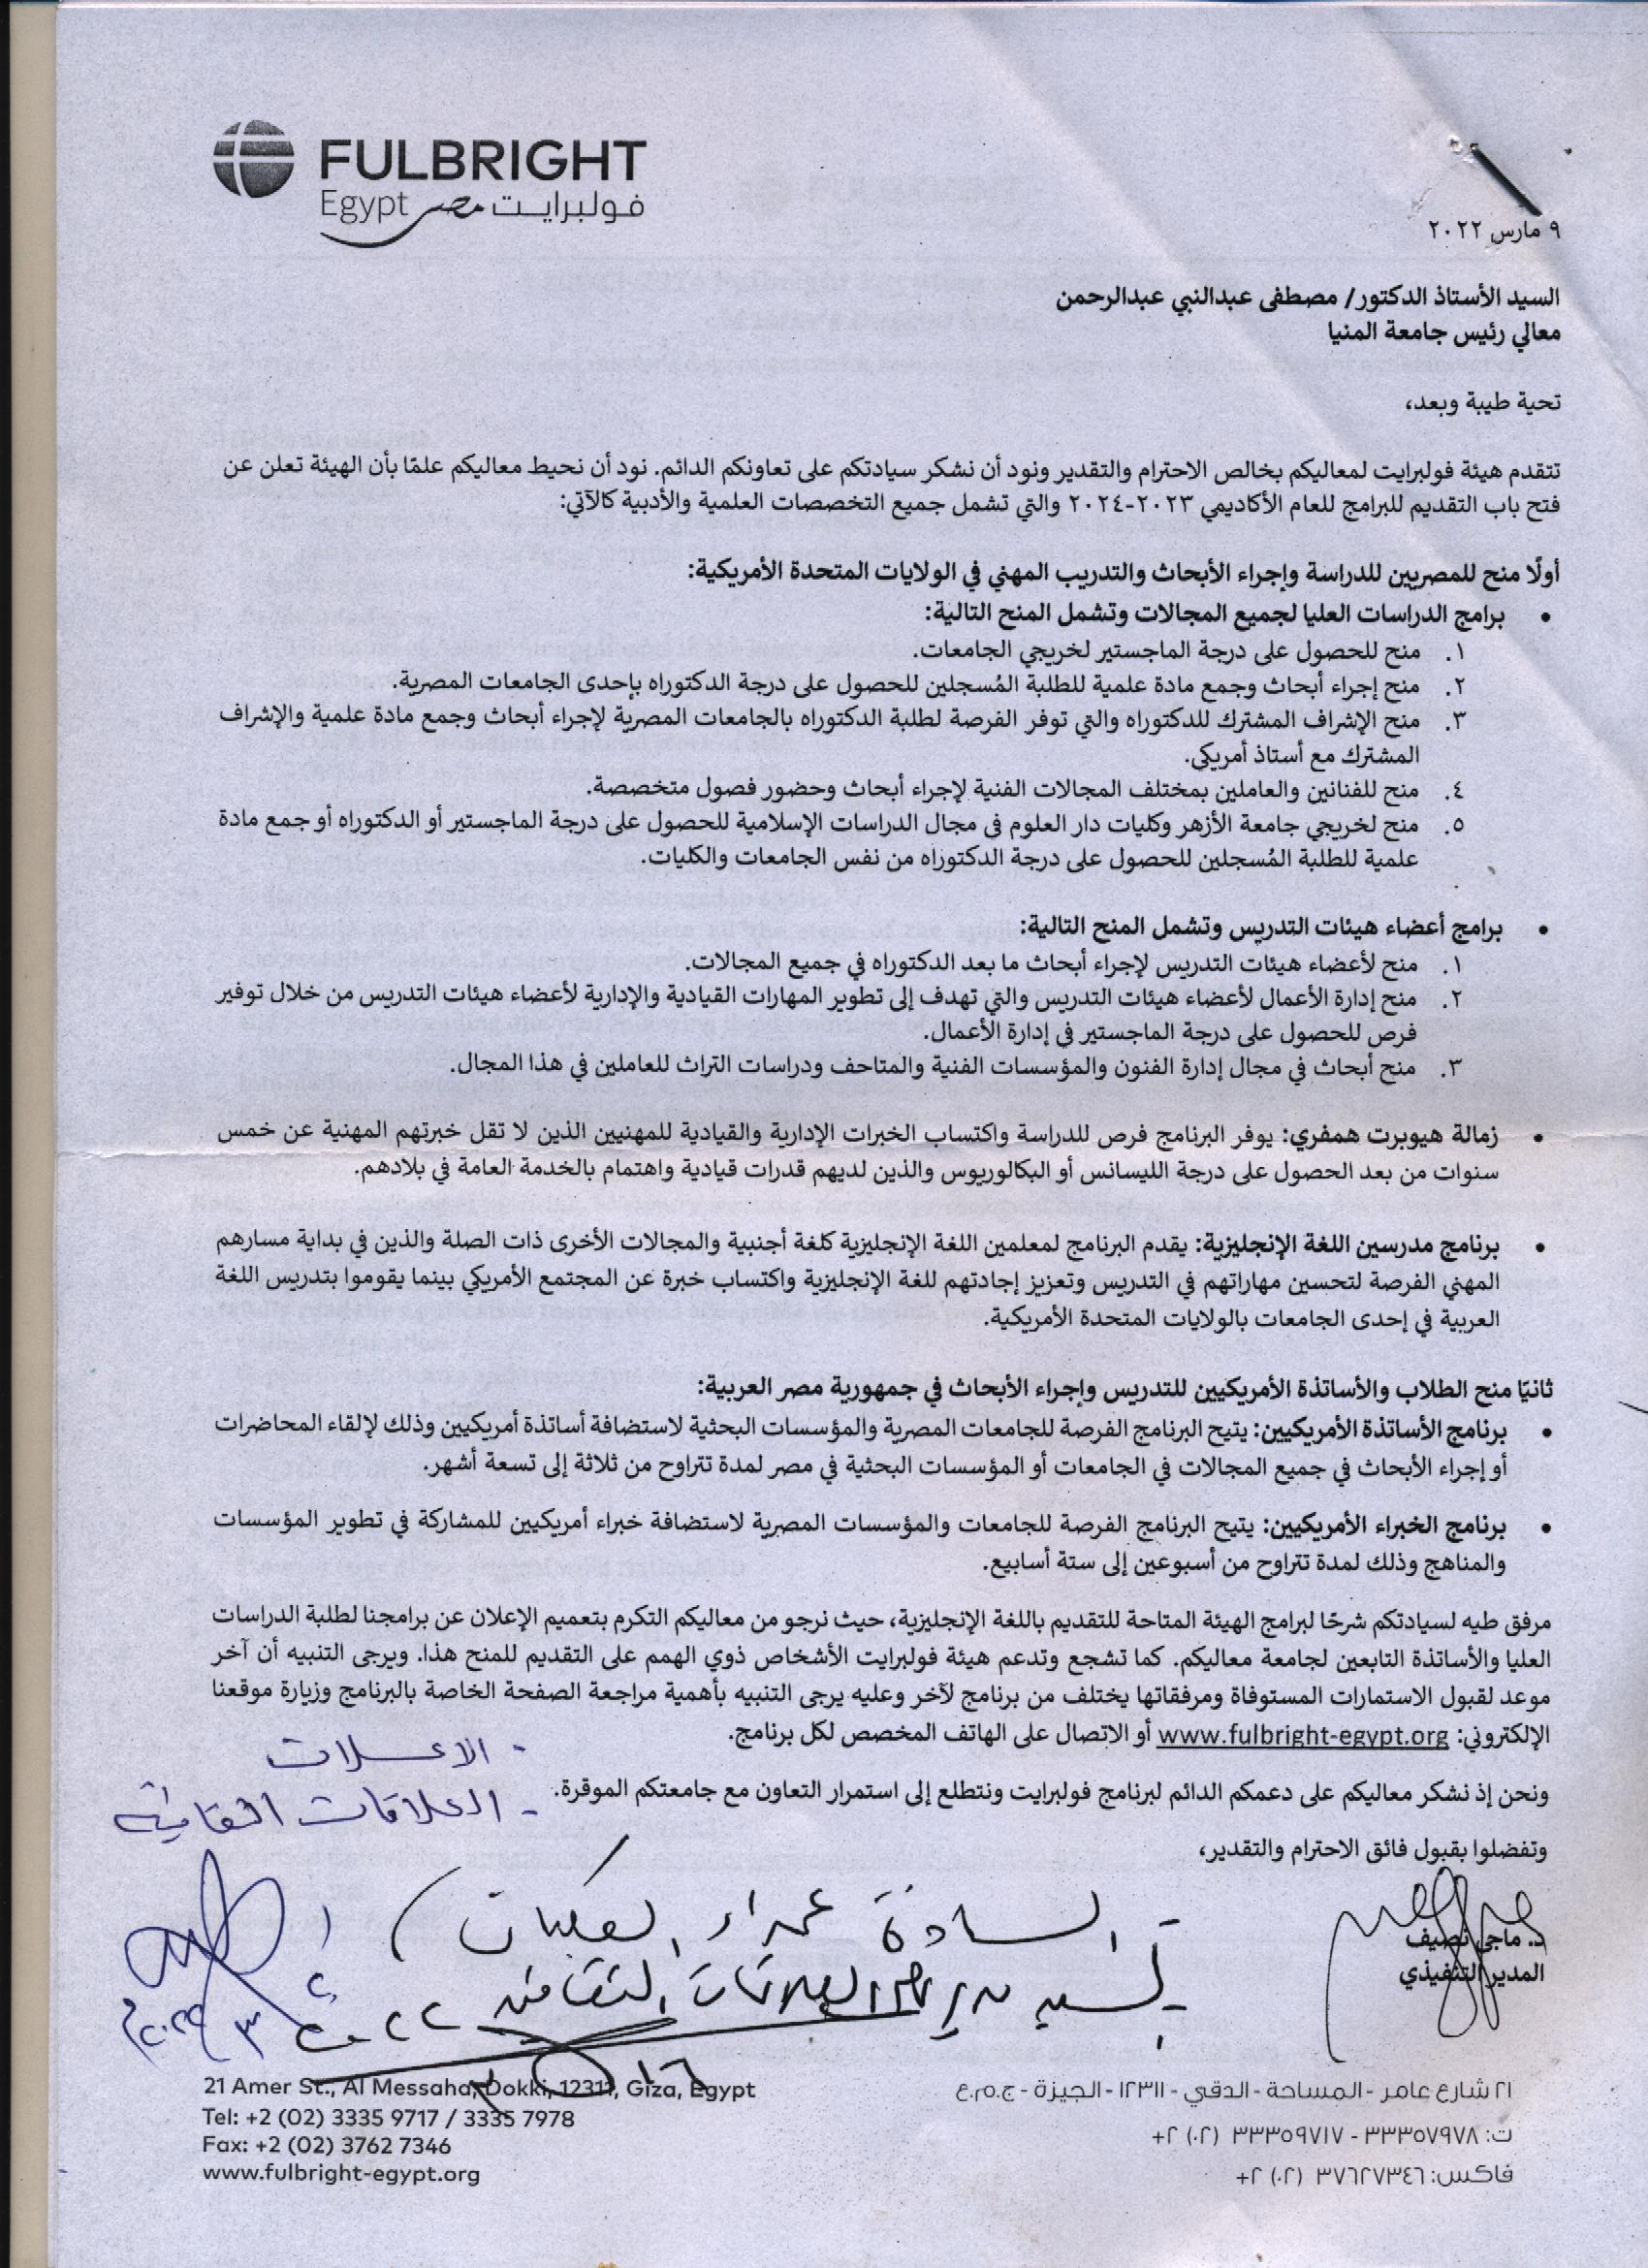 FULBRIGHT
Egypt فولبرايت مصر
٩ مارس ٢٠٢٢
السيد الأستاذ الدكتور/ مصطفى عبدالنبي عبدالرحمن
معالي رئيس جامعة المنيا
تحية طيبة وبعد،
تتقدم هيئة فولبرايت لمعاليكم بخالص الاحترام والتقدير ونود أن نشكر سيادتكم على تعاونكم الدائم. نود أن نحيط معاليكم علمًا بأن الهيئة تعلن عن
فتح باب التقديم للبرامج للعام الأكاديمي ٢٠٢٣-٢٠٢٤ والتي تشمل جميع التخصصات العلمية والأدبية كالآتي:
أولًا منح للمصريين للدراسة وإجراء الأبحاث والتدريب المهني في الولايات المتحدة الأمريكية:
• برامج الدراسات العليا لجميع المجالات وتشمل المنح التالية:
١. منح للحصول على درجة الماجستير لخريجي الجامعات.
٢. منح إجراء أبحاث وجمع مادة علمية للطلبة المُسجلين للحصول على درجة الدكتوراه بإحدى الجامعات المصرية.
٣. منح الإشراف المشترك للدكتوراه والتي توفر الفرصة لطلبة الدكتوراه بالجامعات المصرية لإجراء أبحاث وجمع مادة علمية والإشراف
المشترك مع أستاذ أمريكي.
٤. منح للفنانين والعاملين بمختلف المجالات الفنية لإجراء أبحاث وحضور فصول متخصصة.
٥. منح لخريجي جامعة الأزهر وكليات دار العلوم في مجال الدراسات الإسلامية للحصول على درجة الماجستير أو الدكتوراه أو جمع مادة
علمية للطلبة المُسجلين للحصول على درجة الدكتوراه من نفس الجامعات والكليات.
• برامج أعضاء هيئات التدريس وتشمل المنح التالية:
١. منح لأعضاء هيئات التدريس لإجراء أبحاث ما بعد الدكتوراه في جميع المجالات.
٢. منح إدارة الأعمال لأعضاء هيئات التدريس والتي تهدف إلى تطوير المهارات القيادية والإدارية لأعضاء هيئات التدريس من خلال توفير
فرص للحصول على درجة الماجستير في إدارة الأعمال.
٣. منح أبحاث في مجال إدارة الفنون والمؤسسات الفنية والمتاحف ودراسات التراث للعاملين في هذا المجال.
• زمالة هيوبرت همفري: يوفر البرنامج فرص للدراسة واكتساب الخبرات الإدارية والقيادية للمهنيين الذين لا تقل خبرتهم المهنية عن خمس
سنوات من بعد الحصول على درجة الليسانس أو البكالوريوس والذين لديهم قدرات قيادية واهتمام بالخدمة العامة في بلادهم.
• برنامج مدرسين اللغة الإنجليزية: يقدم البرنامج لمعلمين اللغة الإنجليزية كلغة أجنبية والمجالات الأخرى ذات الصلة والذين في بداية مسارهم
المهني الفرصة لتحسين مهاراتهم في التدريس وتعزيز إجادتهم للغة الإنجليزية واكتساب خبرة عن المجتمع الأمريكي بينما يقوموا بتدريس اللغة
العربية في إحدى الجامعات بالولايات المتحدة الأمريكية.
ثانيًا منح الطلاب والأساتذة الأمريكيين للتدريس وإجراء الأبحاث في جمهورية مصر العربية:
• برنامج الأساتذة الأمريكيين: يتيح البرنامج الفرصة للجامعات المصرية والمؤسسات البحثية لاستضافة أساتذة أمريكيين وذلك لإلقاء المحاضرات
أو إجراء الأبحاث في جميع المجالات في الجامعات أو المؤسسات البحثية في مصر لمدة تتراوح من ثلاثة إلى تسعة أشهر.
• برنامج الخبراء الأمريكيين: يتيح البرنامج الفرصة للجامعات والمؤسسات المصرية لاستضافة خبراء أمريكيين للمشاركة في تطوير المؤسسات
والمناهج وذلك لمدة تتراوح من أسبوعين إلى ستة أسابيع.
مرفق طيه لسيادتكم شرحًا لبرامج الهيئة المتاحة للتقديم باللغة الإنجليزية، حيث نرجو من معاليكم التكرم بتعميم الإعلان عن برامجنا لطلبة الدراسات
العليا والأساتذة التابعين لجامعة معاليكم. كما تشجع وتدعم هيئة فولبرايت الأشخاص ذوي الهمم على التقديم للمنح هذا. ويرجى التنبيه أن آخر
موعد لقبول الاستمارات المستوفاة ومرفقاتها يختلف من برنامج لآخر وعليه يرجى التنبيه بأهمية مراجعة الصفحة الخاصة بالبرنامج وزيارة موقعنا
الإلكتروني: www.fulbright-egypt.org أو الاتصال على الهاتف المخصص لكل برنامج.
- الاعلانات
ونحن إذ نشكر معاليكم على دعمكم الدائم لبرنامج فولبرايت ونتطلع إلى استمرار التعاون مع جامعتكم الموقرة.
- العلاقات الثقافية
وتفضلوا بقبول فائق الاحترام والتقدير،
- السادة عمداء الكليات
د. ماجى نصيف
- السيد مدير العلاقات الثقافية
المدير التنفيذي
21 Amer St., Al Messaha, Dokki, 12311, Giza, Egypt
Tel: +2 (02) 3335 9717 / 3335 7978
Fax: +2 (02) 3762 7346
www.fulbright-egypt.org
٢١ شارع عامر - المساحة - الدقي - ١٢٣١١ - الجيزة - ج.م.ع
ت: ٣٣٣٥٧٩٧٨ - ٣٣٣٥٩٧١٧ (٠٢) ٢+
فاكس: ٣٧٦٢٧٣٤٦ (٠٢) ٢+